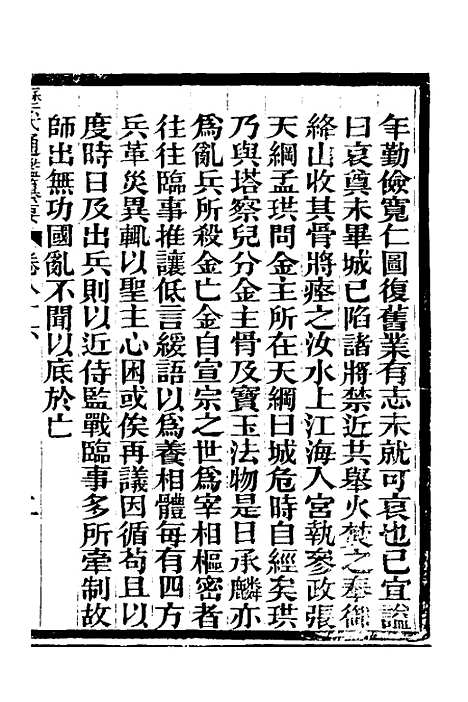 年勤儉寬仁圖復舊業有志未就可哀也已宜諡
曰哀奠未畢城已陷諸將禁近共舉火焚之奉御
絳山收其骨將瘞之汝水上江海入宮執參政張
天綱孟珙問金主所在天綱曰城危時自經矣珙
乃與塔察兒分金主骨及寶玉法物是日承麟亦
為亂兵所殺金亡金自宣宗之世為宰相樞密者
往往臨事推讓低言緩語以為養相體每有四方
兵革災異輒以聖主心困或俟再議因循苟且以
度時日及出兵則以近侍監戰臨事多所牽制故
師出無功國亂不聞以底於亡
代通鑑